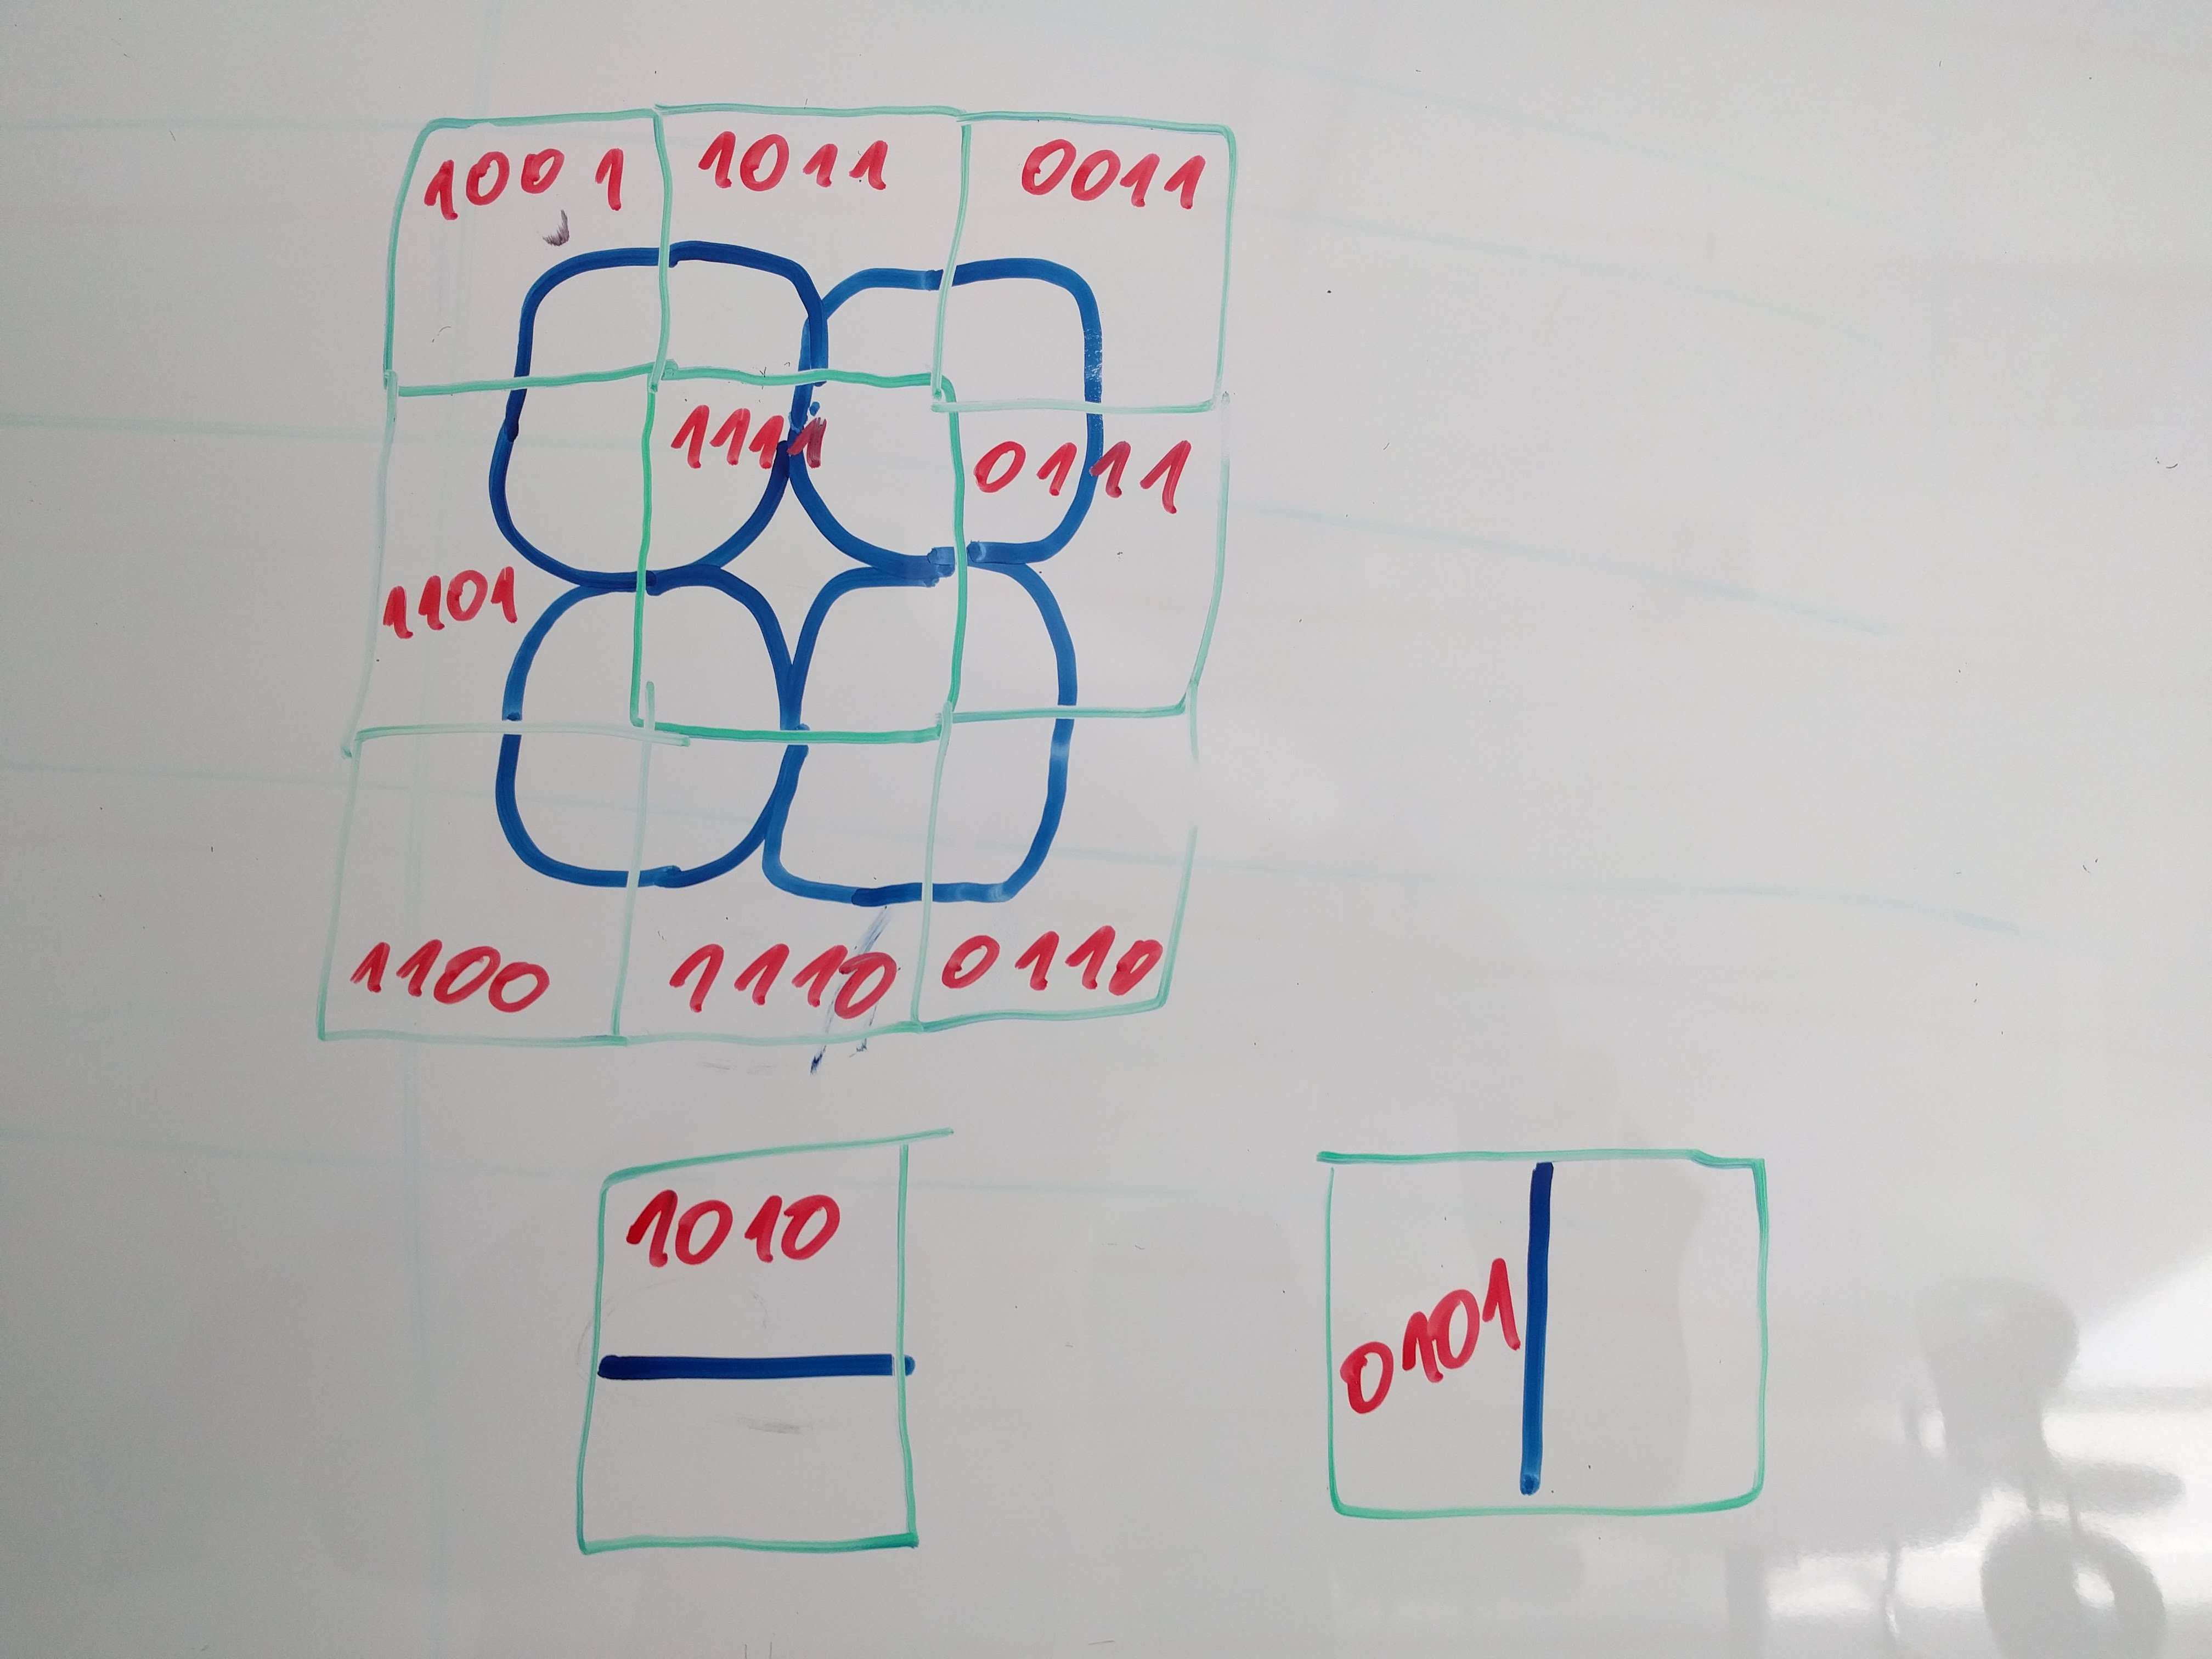 1001 1011 0011
1111 0111
1101
1100 1110 0110
1010
0101